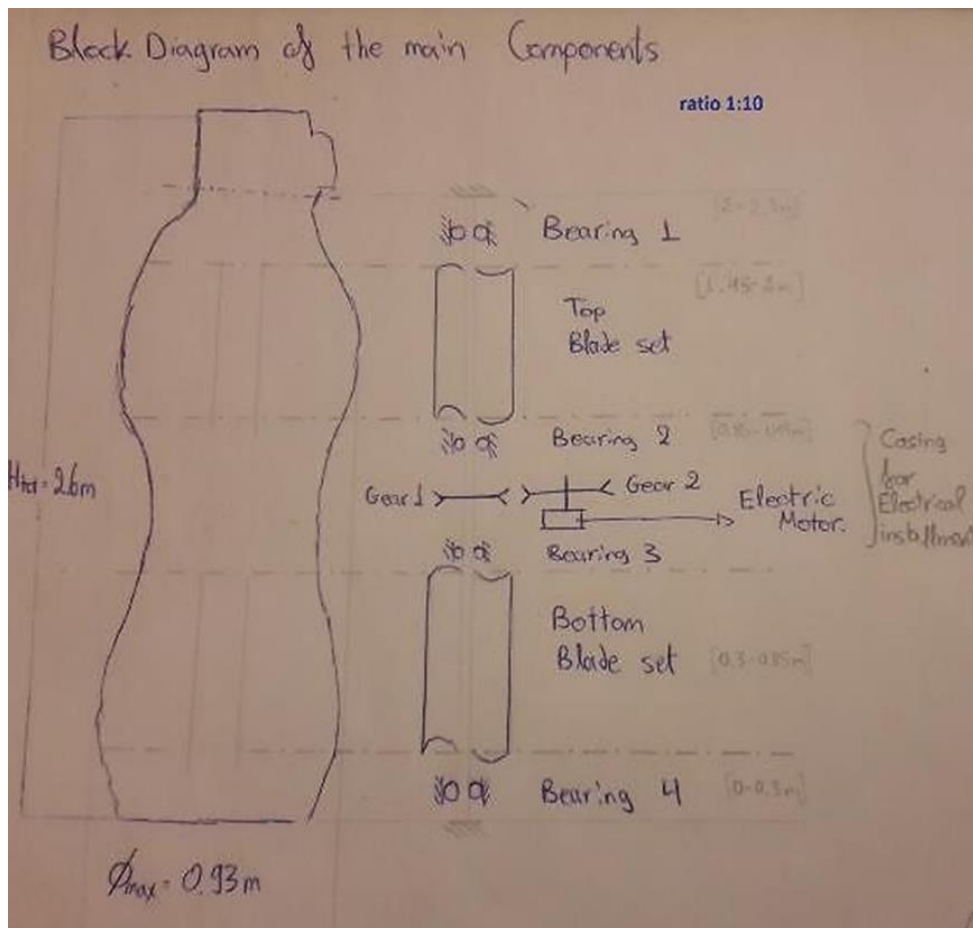 Block Diagram of the main Components
ratio 1:10
Bearing 1
Top
Blade set
Bearing 2
Htot = 2.6m
Gear 1
Gear 2
Electric
Motor.
Casing
for
Electrical
installment
Bearing 3
Bottom
Blade set
[0.3-0.85m]
Bearing 4
[0-0.3m]
Φmax = 0.93m